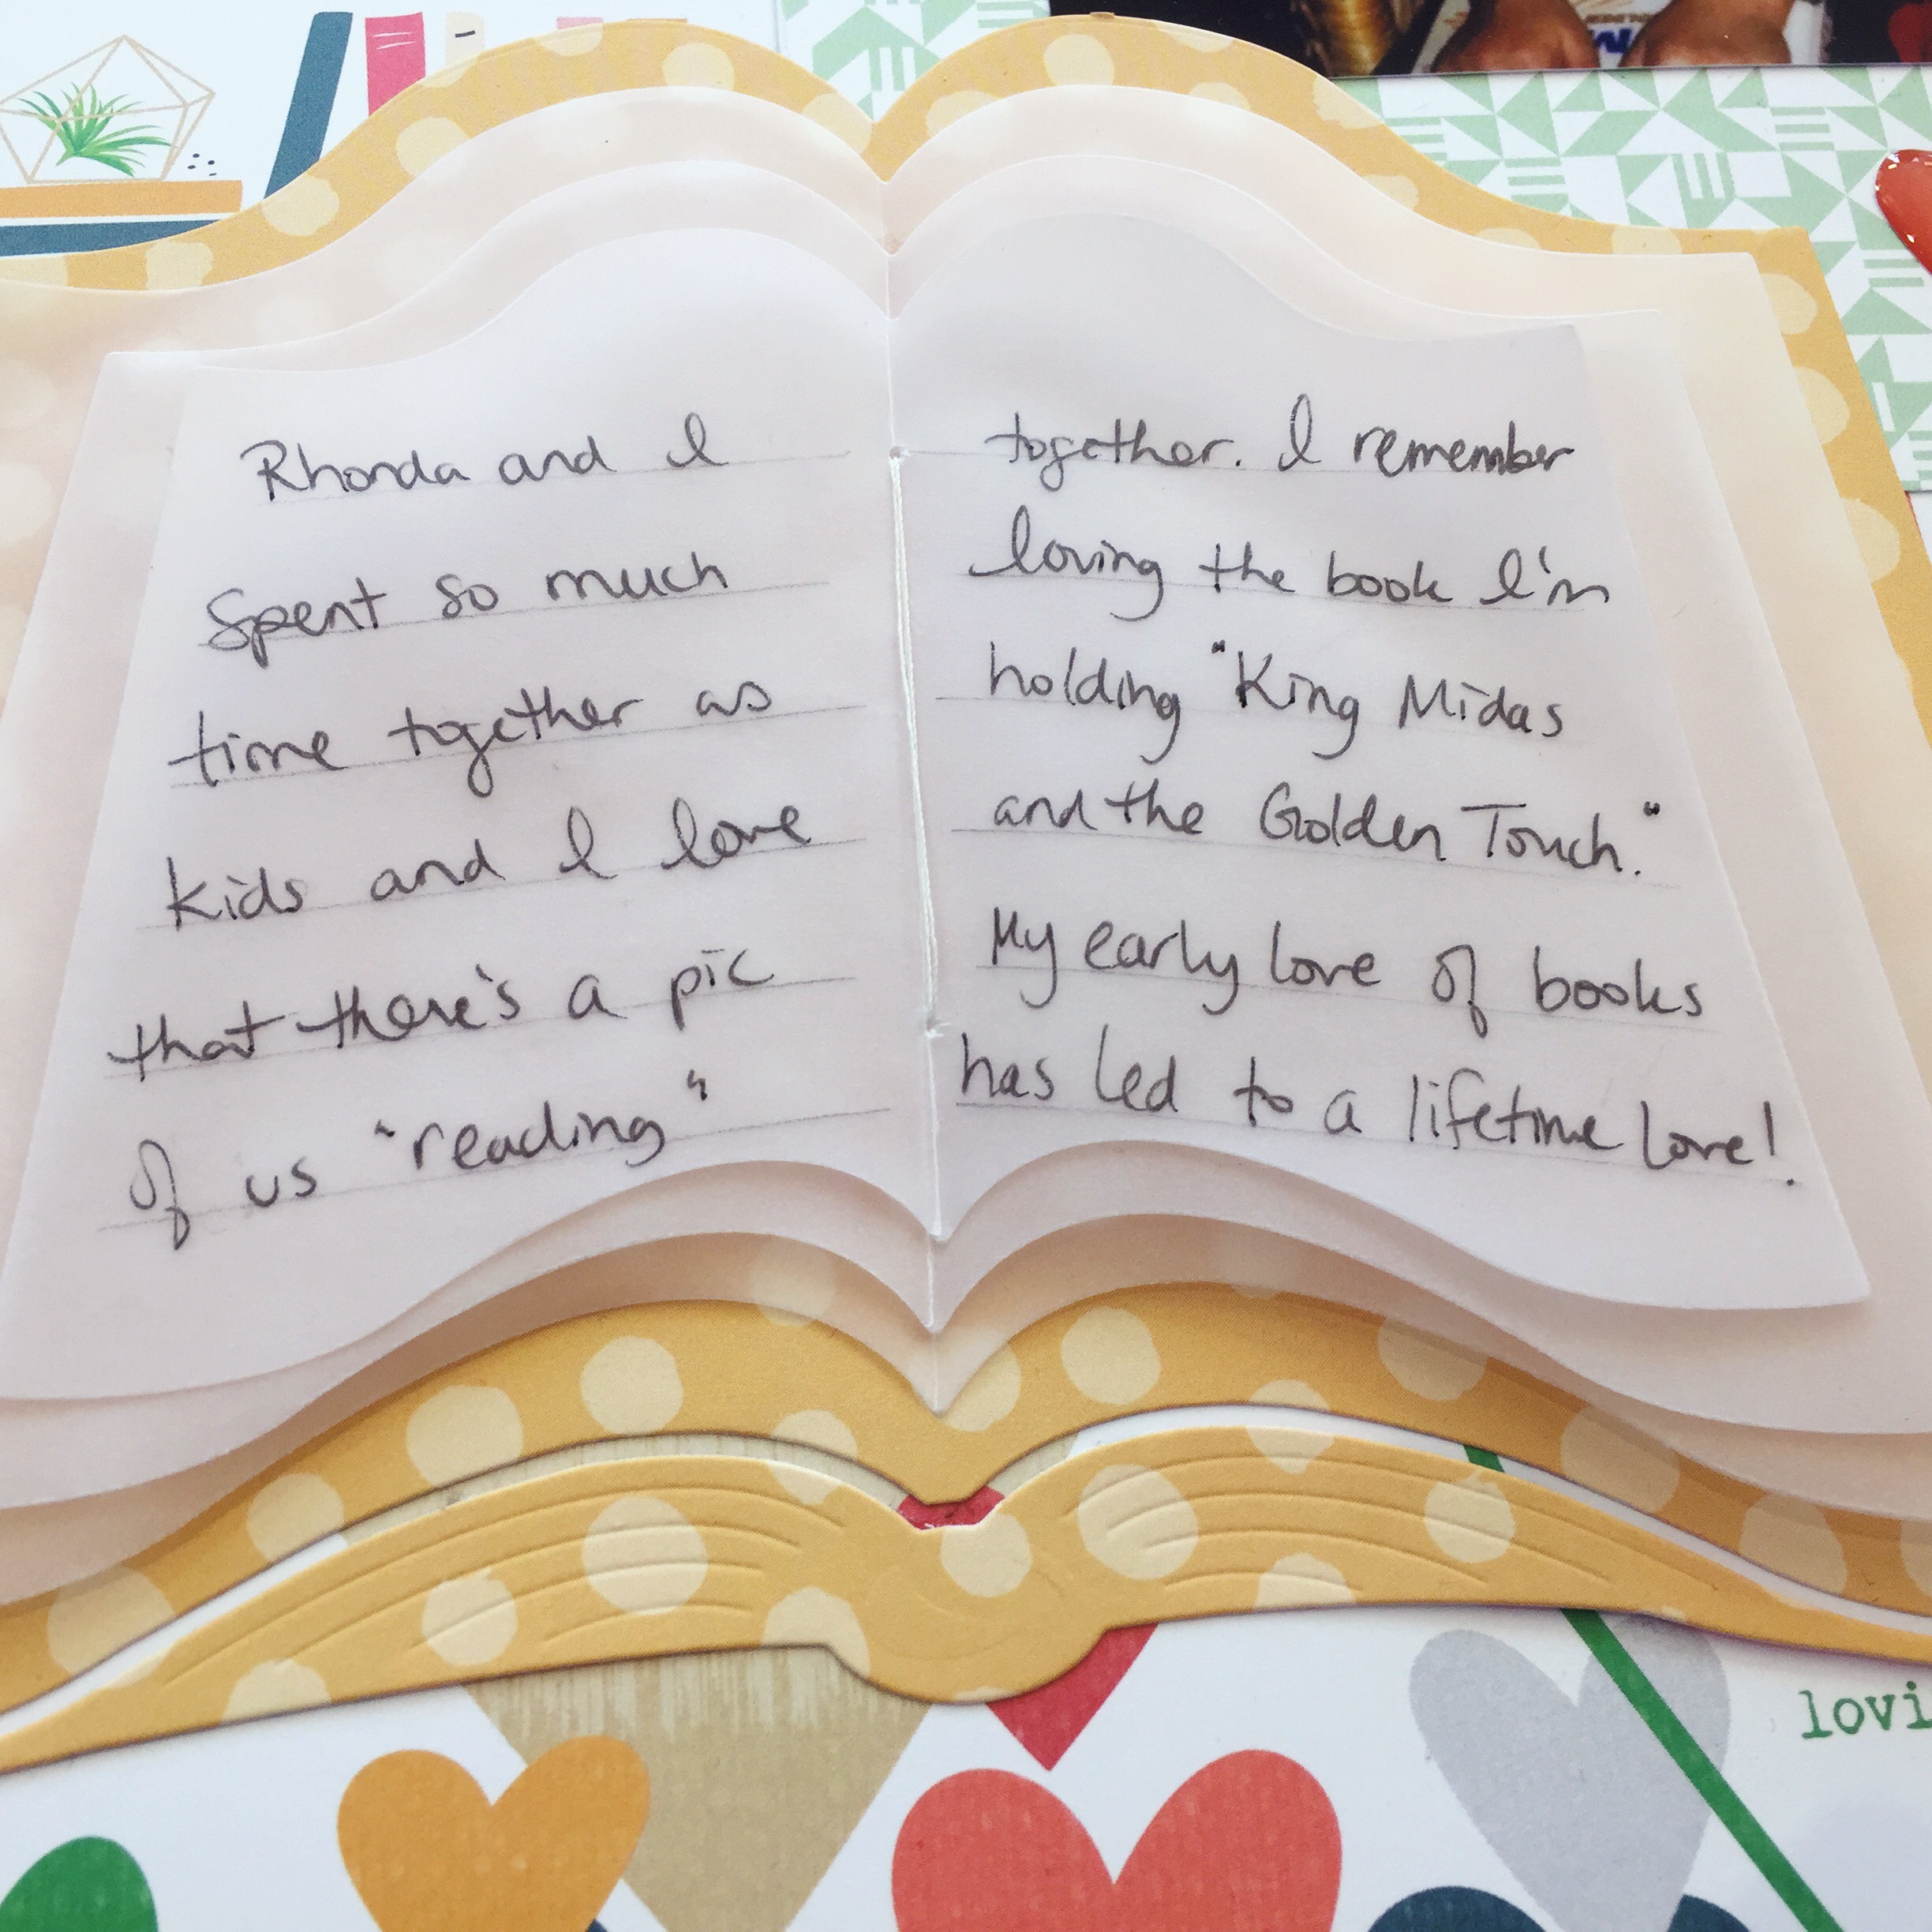 Rhonda and I
Spent so much
time together as
kids and I love
that there's a pic
of us "reading"
together. I remember
loving the book I'm
holding "King Midas
and the Golden Touch."
My early love of books
has led to a lifetime love!
lovi